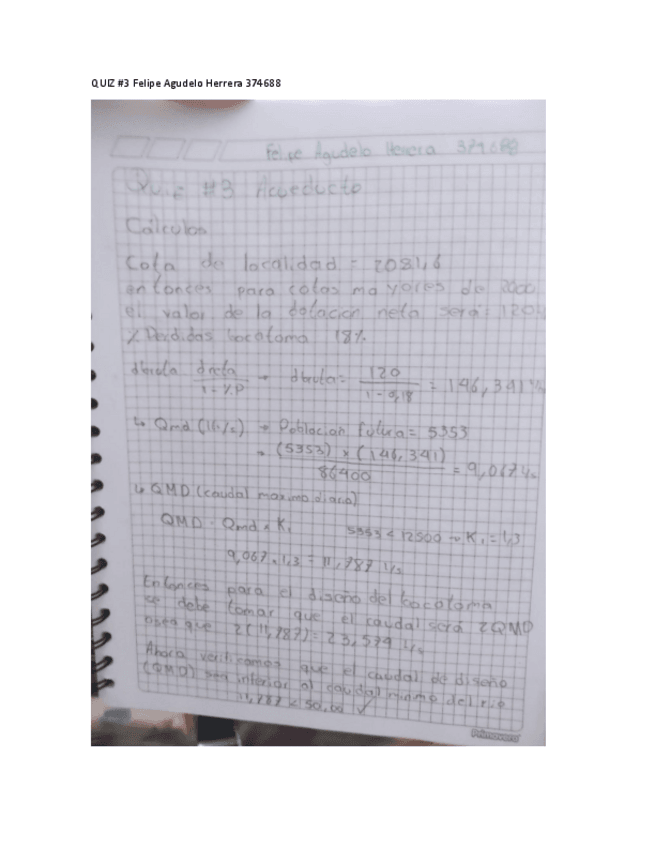 QUIZ #3 Felipe Agudelo Herrera 374688
Felipe Agudelo Herrera 374688
Quiz #3 Acueducto
Cálculos
Cota de localidad = 2081,6
entonces para cotas mayores de 2000
el valor de la dotacion neta será: 120
% Perdidas bocatoma 18%
dbruta dneta / 1 - %P → dbruta = 120 / 1 - 0,18 = 146,341
↳ Qmd → Poblacion futura = 5353
→ (5353) x (146,341) / 86400 = 9,067
↳ QMD (caudal maximo diario)
QMD = Qmd x K1 5353 < 12500 → K1 = 1,3
9,067 . 1,3 = 11,787
Entonces para el diseño del bocatoma
se debe tomar que el caudal será 2QMD
osea que 2(11,787) = 23,574
Ahora verificamos que el caudal de diseño
(QMD) sea inferior al caudal minimo del rio
11,787 < 50,00 ✓
Primavera